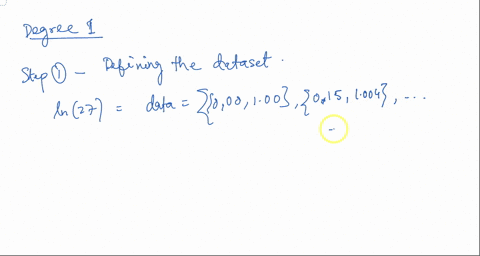 Degree 1
Step ① - Defining the dataset.
ln(27) = data = {{0,00, 1.00}, {0.15, 1.004}, ...